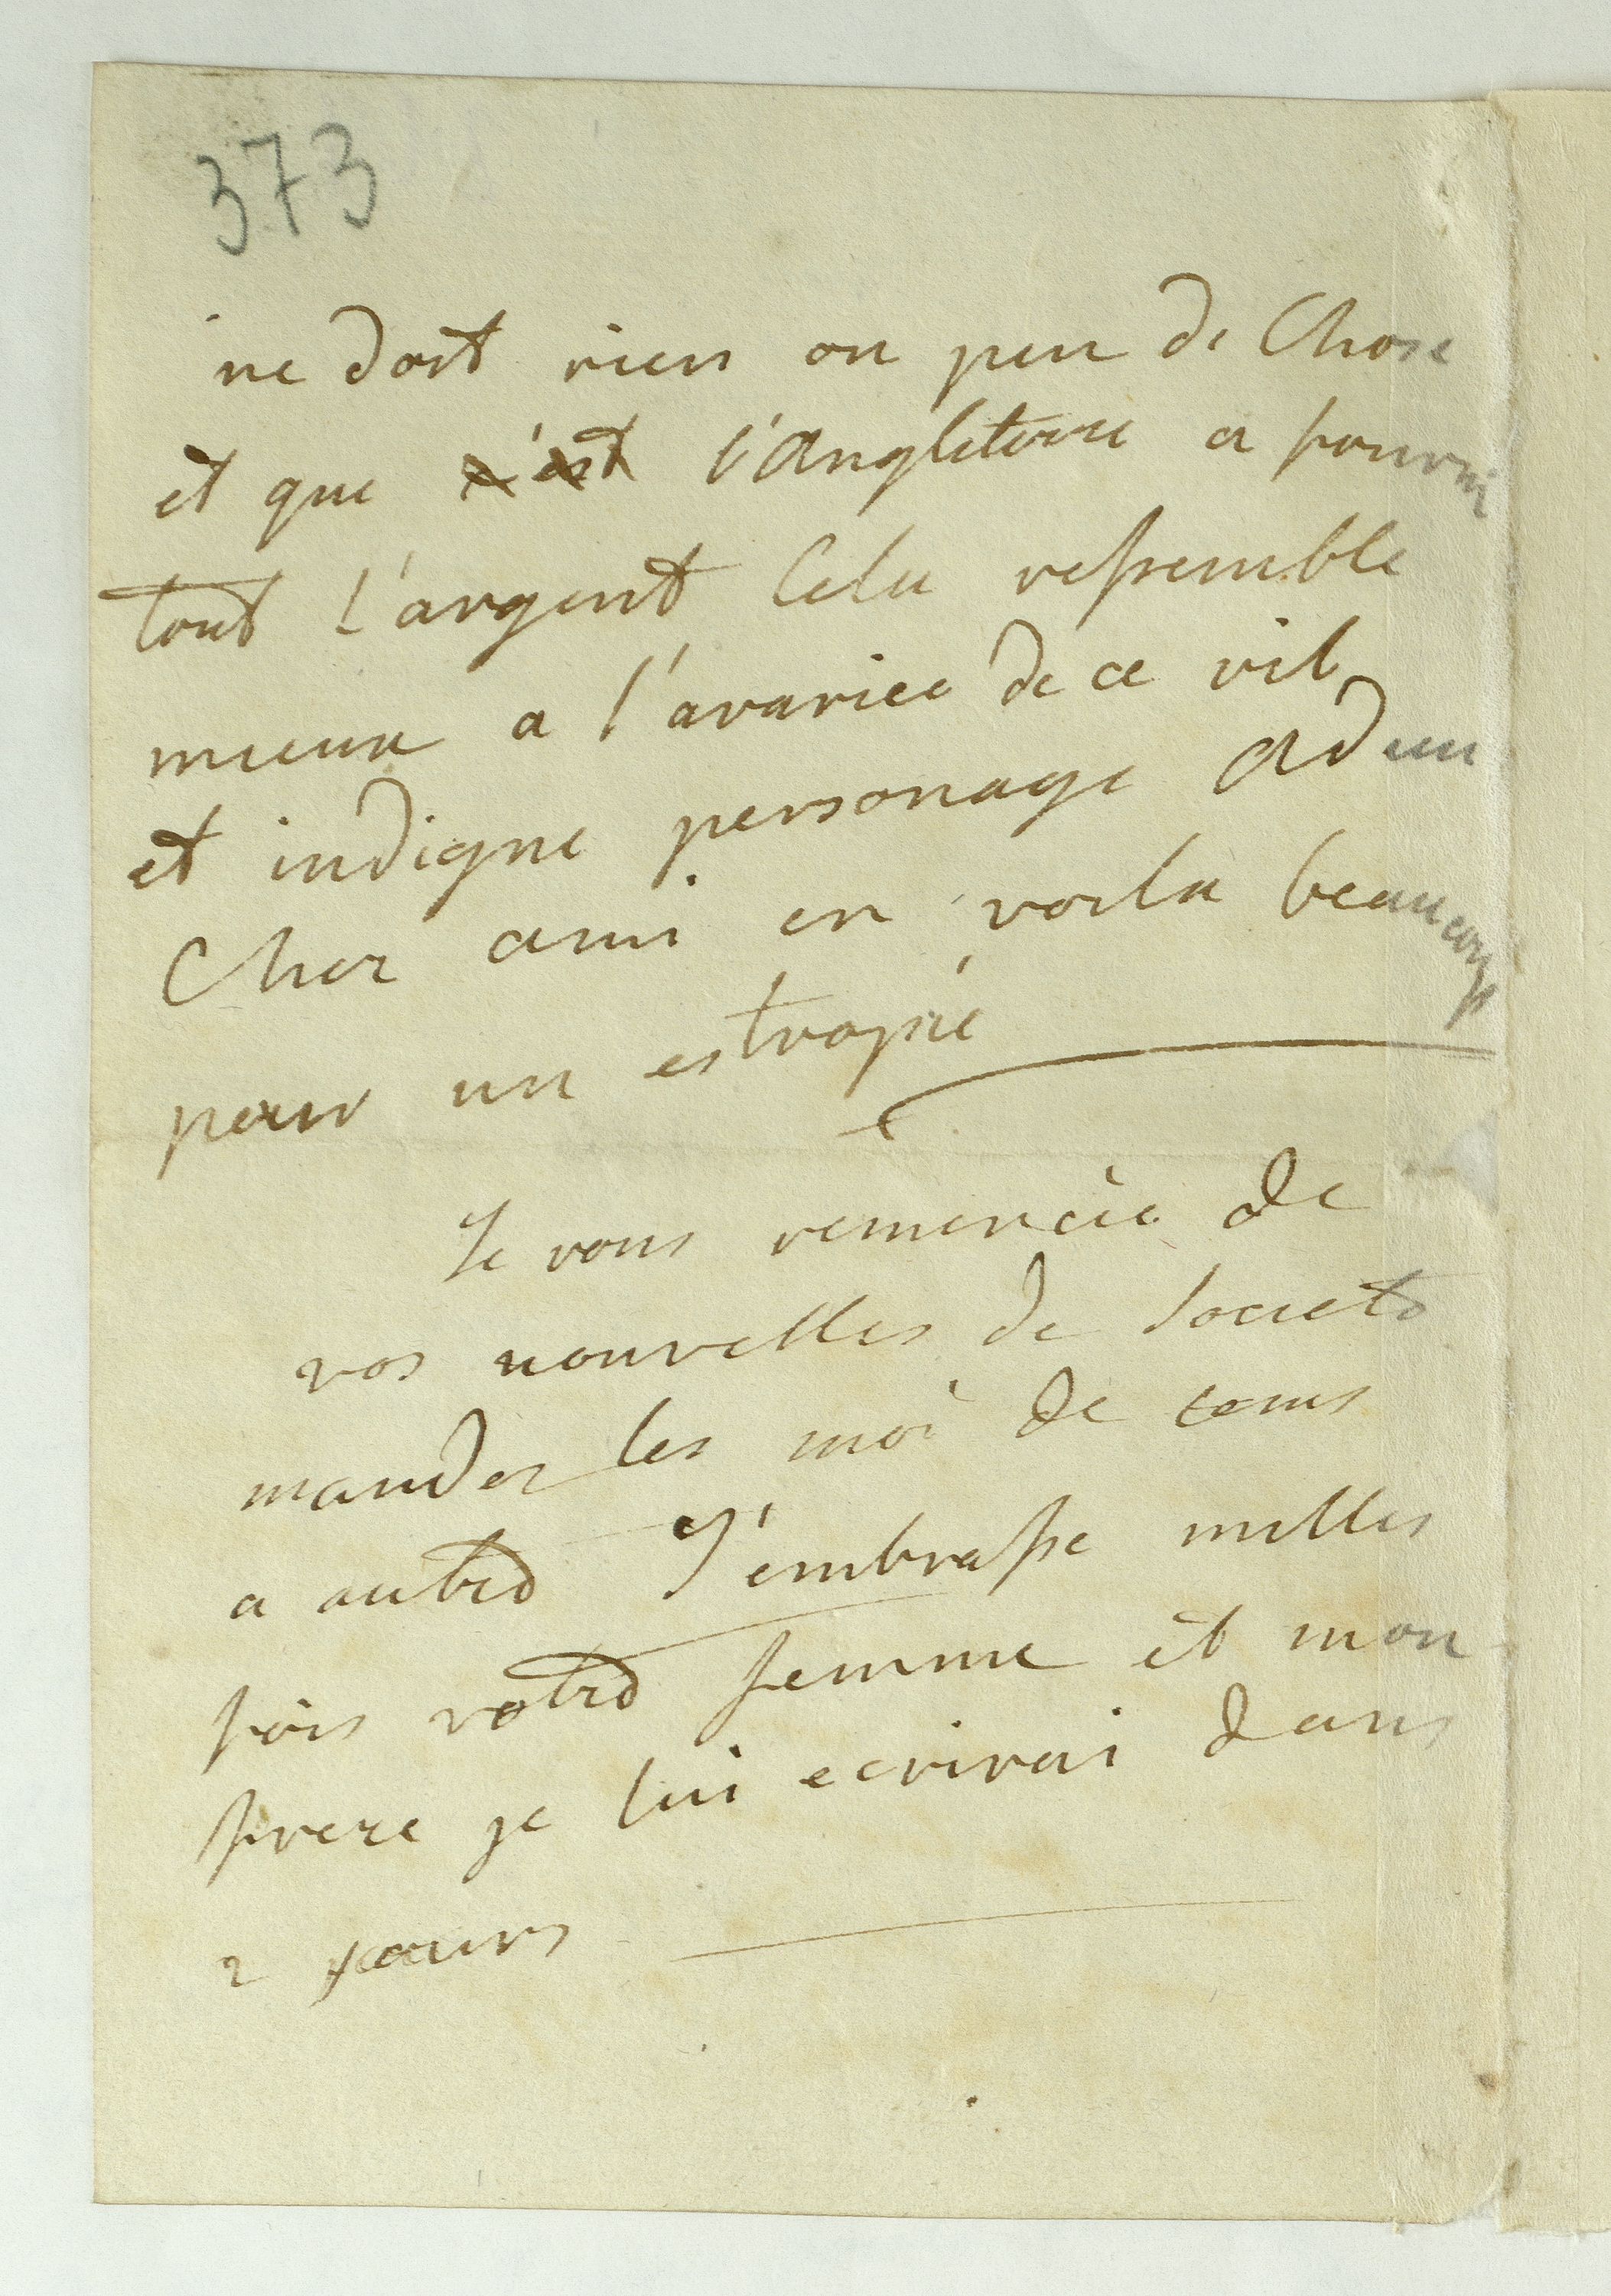 373
ne doit rien ou peu de Chose
et que c'est l'Angleterre a fourni
tout l'argent Cela ressemble
mieux a l'avarice de ce vil
et indigne personage Adieu
Cher ami en voila beaucoup
pour un estropié
Je vous remercie de
vos nouvelles de societe
mandez les moi de tems
a autre J'embrasse milles
fois votre femme et mon
frere je lui ecrirai dans
2 jours